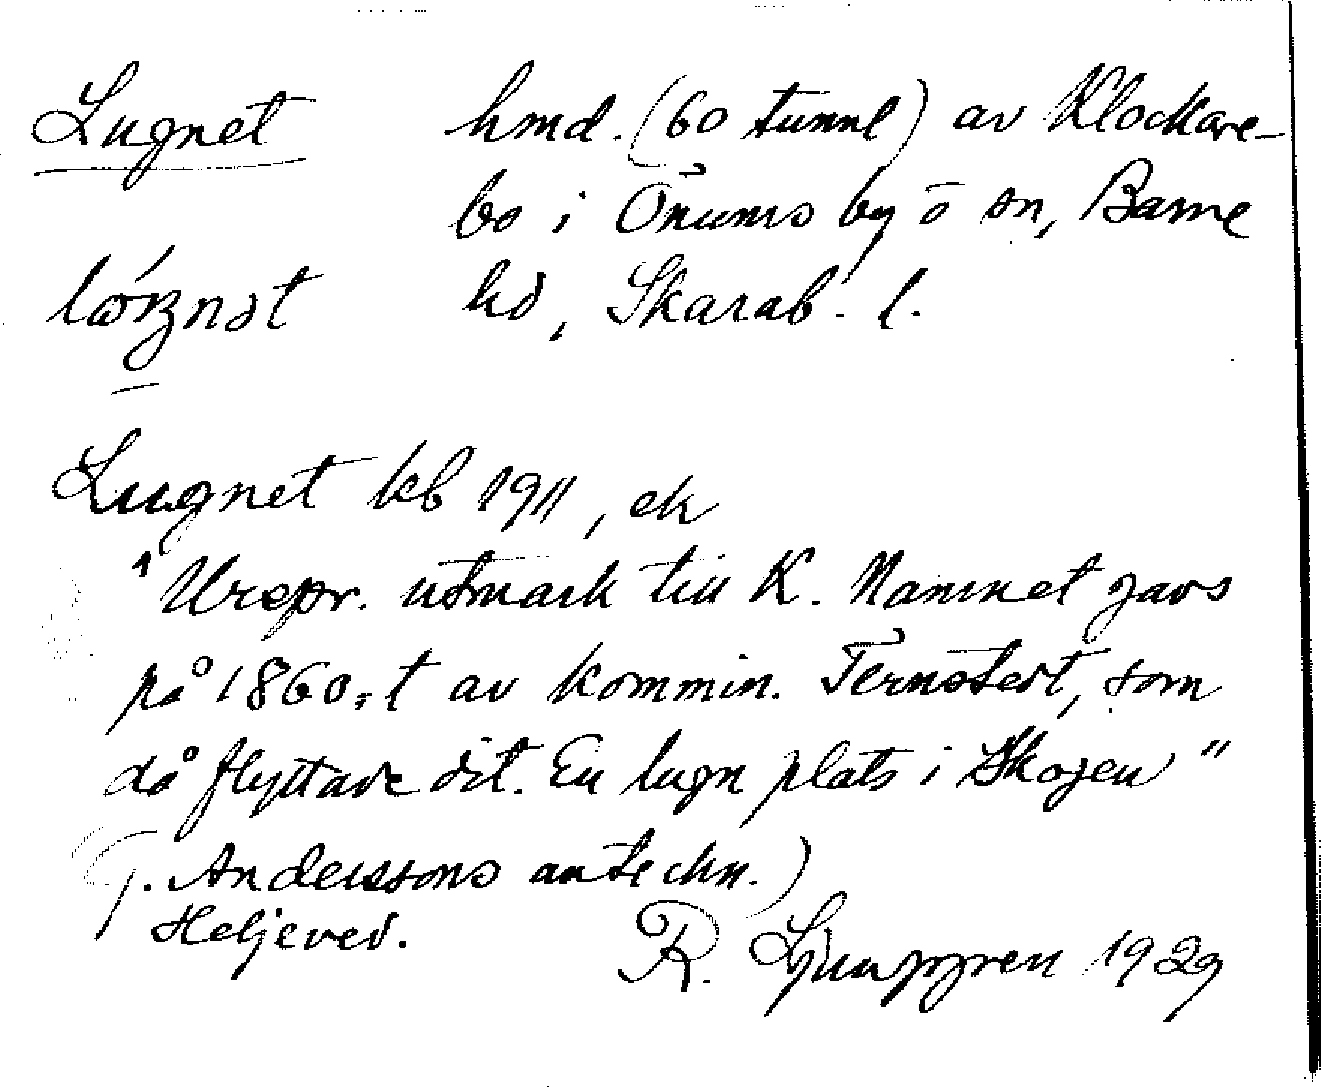 Lugnet hmd. (60 tunnl) av Klockare-
bo i Önums by o sn, Barne
hd, Skarab. l.
Lugnet kb 1911, ek
"Urspr. utmark till K. Namnet gavs
på 1860-t av kommin. Fernstedt, som
då flyttade dit. En lugn plats i skogen"
(J. Anderssons anteckn.)
Heljeved. R. Ljunggren 1929